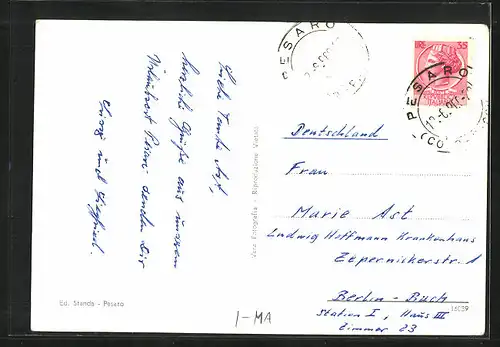 Liebe Tante Ast,
herzliche Grüße aus unserem
Urlaubsort Pesaro senden Dir
und Siegfried.
Ed. Standa - Pesaro
Vera Fotografia - Riproduzione Vietata
PESARO
LIRE 35
PESARO
Deutschland
Frau
Marie Ast
Ludwig Hoffmann Krankenhaus
Zepernickerstr. 1
Berlin-Buch
Station I, Haus III
Zimmer 23
I-MA